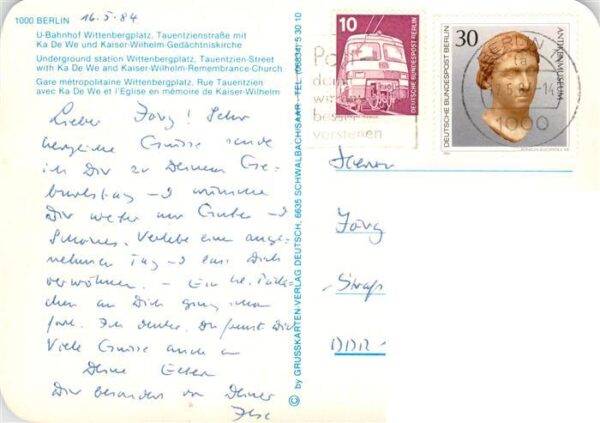 1000 BERLIN
16.5.84
U-Bahnhof Wittenbergplatz, Tauentzienstraße mit
Ka De We und Kaiser-Wilhelm-Gedächtniskirche
Underground station Wittenbergplatz, Tauentzien-Street
with Ka De We and Kaiser-Wilhelm-Remembrance-Church
Gare métropolitaine Wittenbergplatz, Rue Tauentzien
avec Ka De We et l'Eglise en mémoire de Kaiser-Wilhelm
Lieber Jörg! Sehr
herzliche Grüsse sende
ich Dir zu Deinem Ge-
burtstag u wünsche
Dir weiter nur Gutes u
Schönes. Verlebe einen ange-
nehmen Tag u lass Dich
verwöhnen. – Ein kl. Päck-
chen an Dich ging schon
fort. Ich denke, Du freust Dich
Viele Grüsse auch an
Deine Eltern
Dir besonders von Deiner
Ilse
© by GRUSSKARTEN-VERLAG DEUTSCH, 6635 SCHWALBACH/SAAR - TEL. (06834) 5 30 10
10
DEUTSCHE BUNDESPOST BERLIN
30
DEUTSCHE BUNDESPOST BERLIN
ANTIKENMUSEUM
BERLIN
1000
besser
verstehen
Herrn
Jörg
DDR -